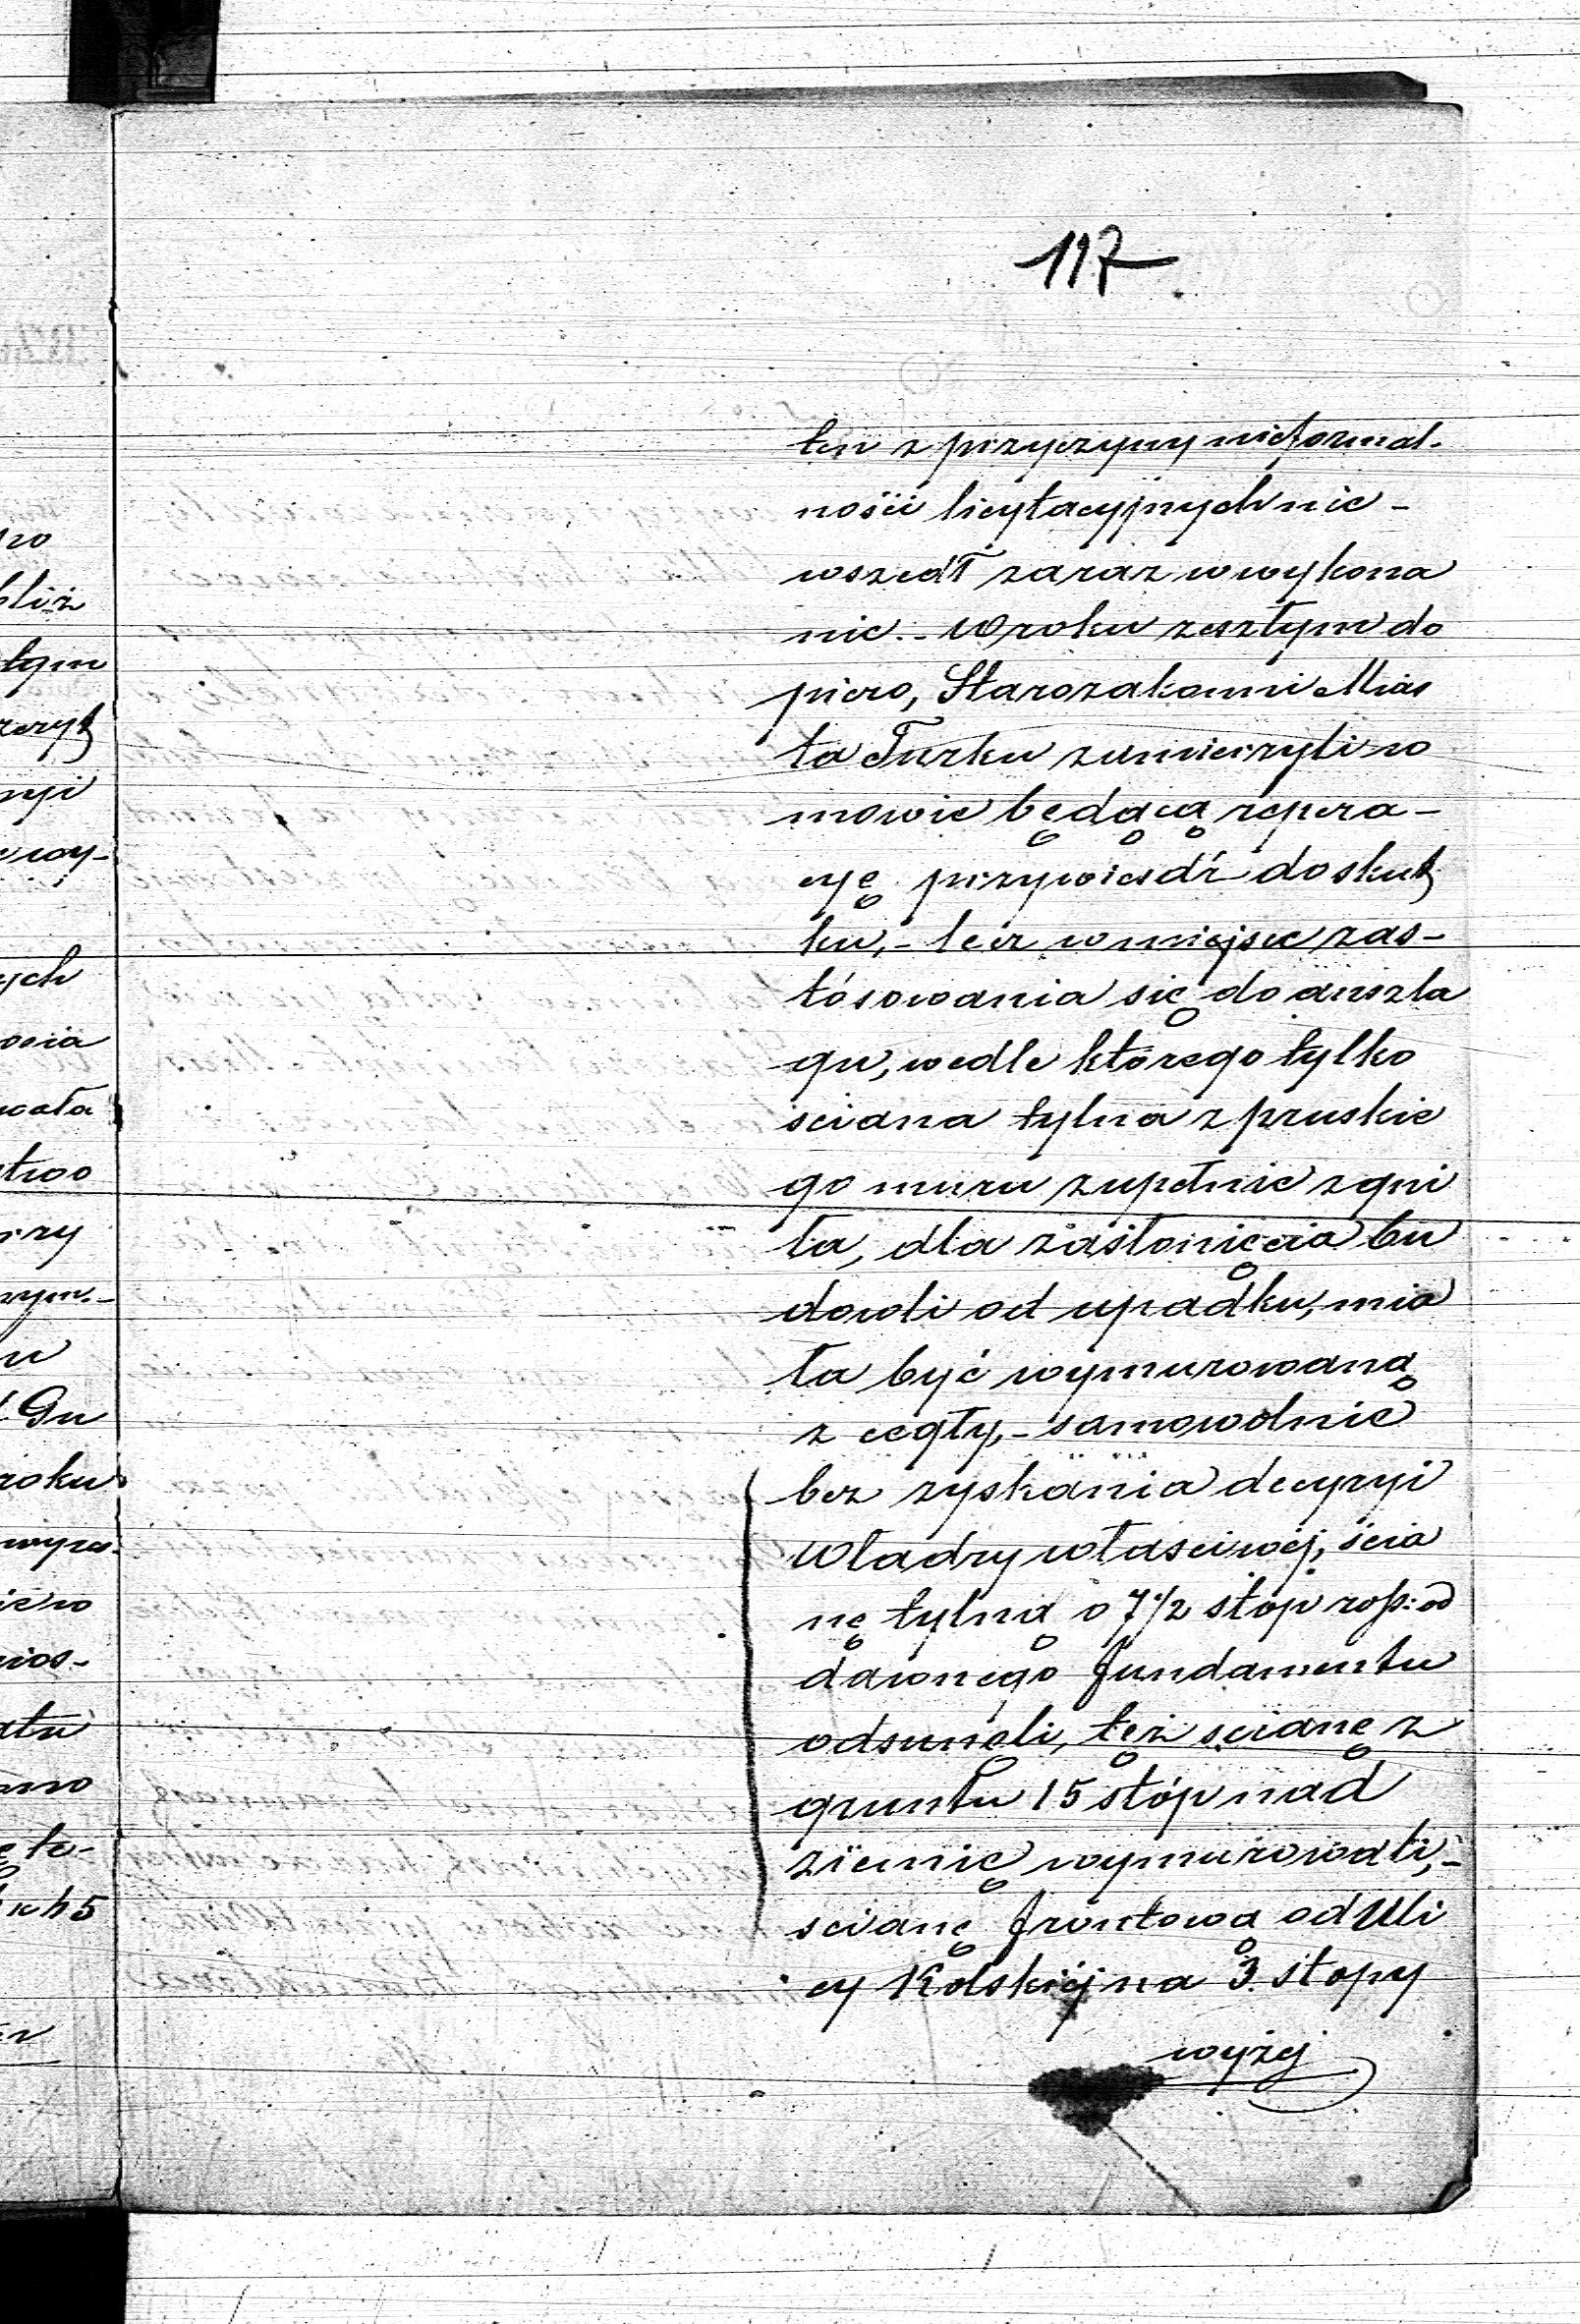 117
ten z przyczyny nieformal-
ności licytacyjnych nie-
wszedł zaraz w wykona
nie. - W roku zeszłym do
piero, Starozakonni Mias
ta Turku zamierzyli w
mowie będącą repera-
cyę przywieśdź do skut
ku, - lecz w miejsce zas-
tósowania się do anszla
gu, wedle którego tylko
sciana tylna z pruskie
go muru zupełnie zgni
ła, dla zasłonięcia bu
dowli od upadku, mia
ła być wymurowaną
z cegły, - samowolnie
bez zyskania decyzyi
Władzy własciwéj, ścia
nę tylną o 7 1/2 stóp rosp: od
dawnego fundamentu
odsunęli, tęż scianę z
gruntu 15 stóp nad
ziemię wymurowali, -
scianę frontową od Uli
cy Kolskiéj na 3. stopy
wyżej
no
bliż
tym
nyi
wy-
ych
wała
two
rzy
nym. -
u
Gu
roku
wyra-
iew
nios-
atu
wno
ę te-
5